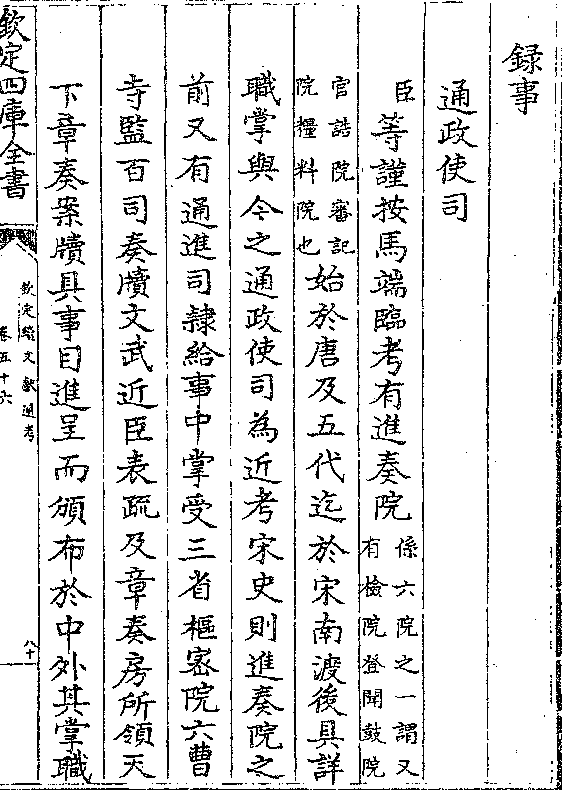 録事
通政使司
臣等謹按馬端臨考有進奏院係六院之一謂又有檢院登聞鼓院
官誥院審記院糧料院也始於唐及五代迄於宋南渡後具詳
職掌與今之通政使司為近考宋史則進奏院之
前又有通進司隸給事中掌受三省樞密院六曹
寺監百司奏牘文武近臣表疏及章奏房所領天
下章奏案牘具事目進呈而頒布於中外其掌職
欽定四庫全書
欽定續文獻通考
卷五十六
八十